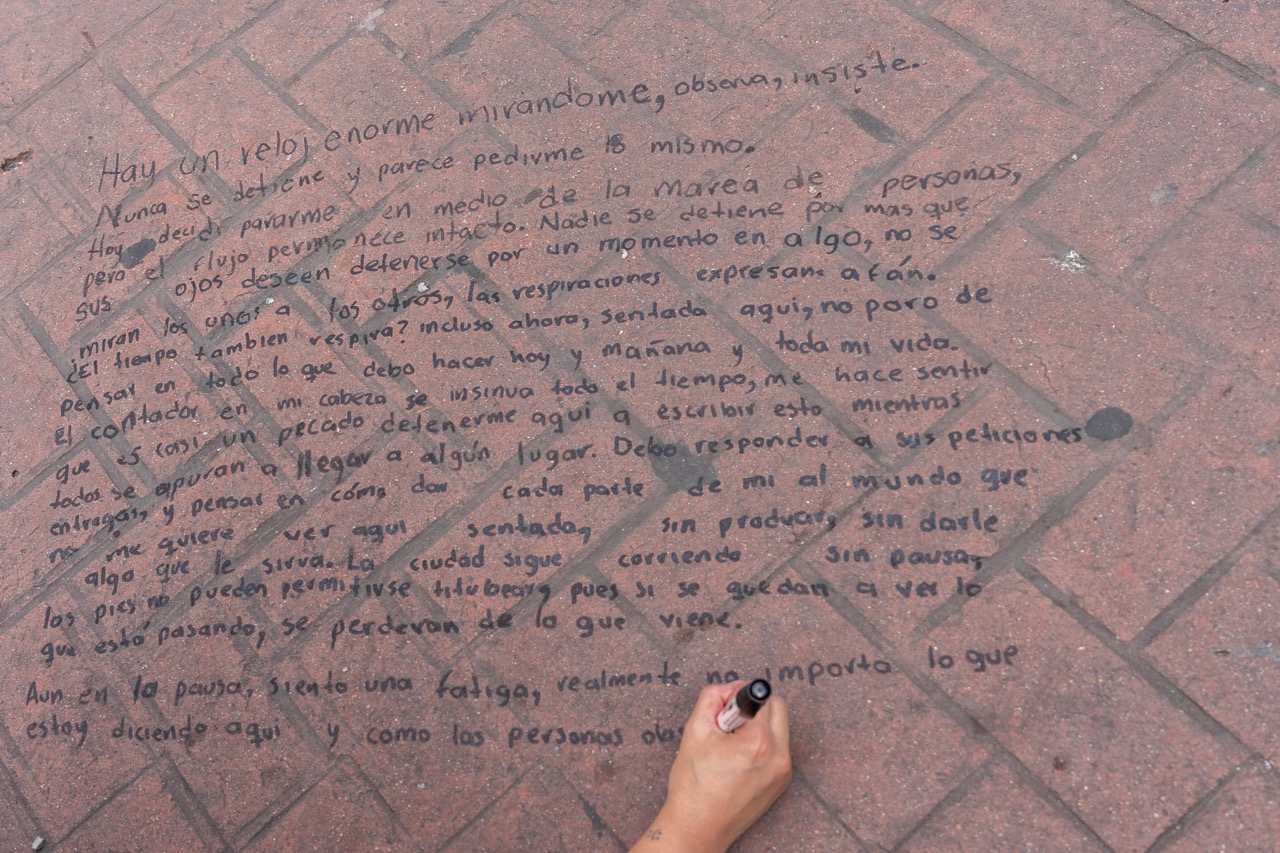 Hay un reloj enorme mirándome, observa, insiste.
Nunca se detiene y parece pedirme lo mismo.
Hoy decidí pararme en medio de la marea de personas,
pero el flujo permanece intacto. Nadie se detiene por mas que
sus ojos deseen detenerse por un momento en algo, no se
miran los unos a los otros, las respiraciones expresan afán.
¿El tiempo tambien respira? incluso ahora, sentada aquí, no paro de
pensar en todo lo que debo hacer hoy y mañana y toda mi vida.
El contador en mi cabeza se insinua todo el tiempo, me hace sentir
que es casi un pecado detenerme aquí a escribir esto mientras
todos se apuran a llegar a algún lugar. Debo responder a sus peticiones
entregas, y pensar en cómo dar cada parte de mi al mundo que
no me quiere ver aqui sentada, sin producir, sin darle
algo que le sirva. La ciudad sigue corriendo sin pausa,
los pies no pueden permitirse titubear, pues si se quedan a ver lo
que está pasando, se perderan de lo que viene.
Aun en la pausa, siento una fatiga, realmente no importa lo que
estoy diciendo aqui y como las personas obs